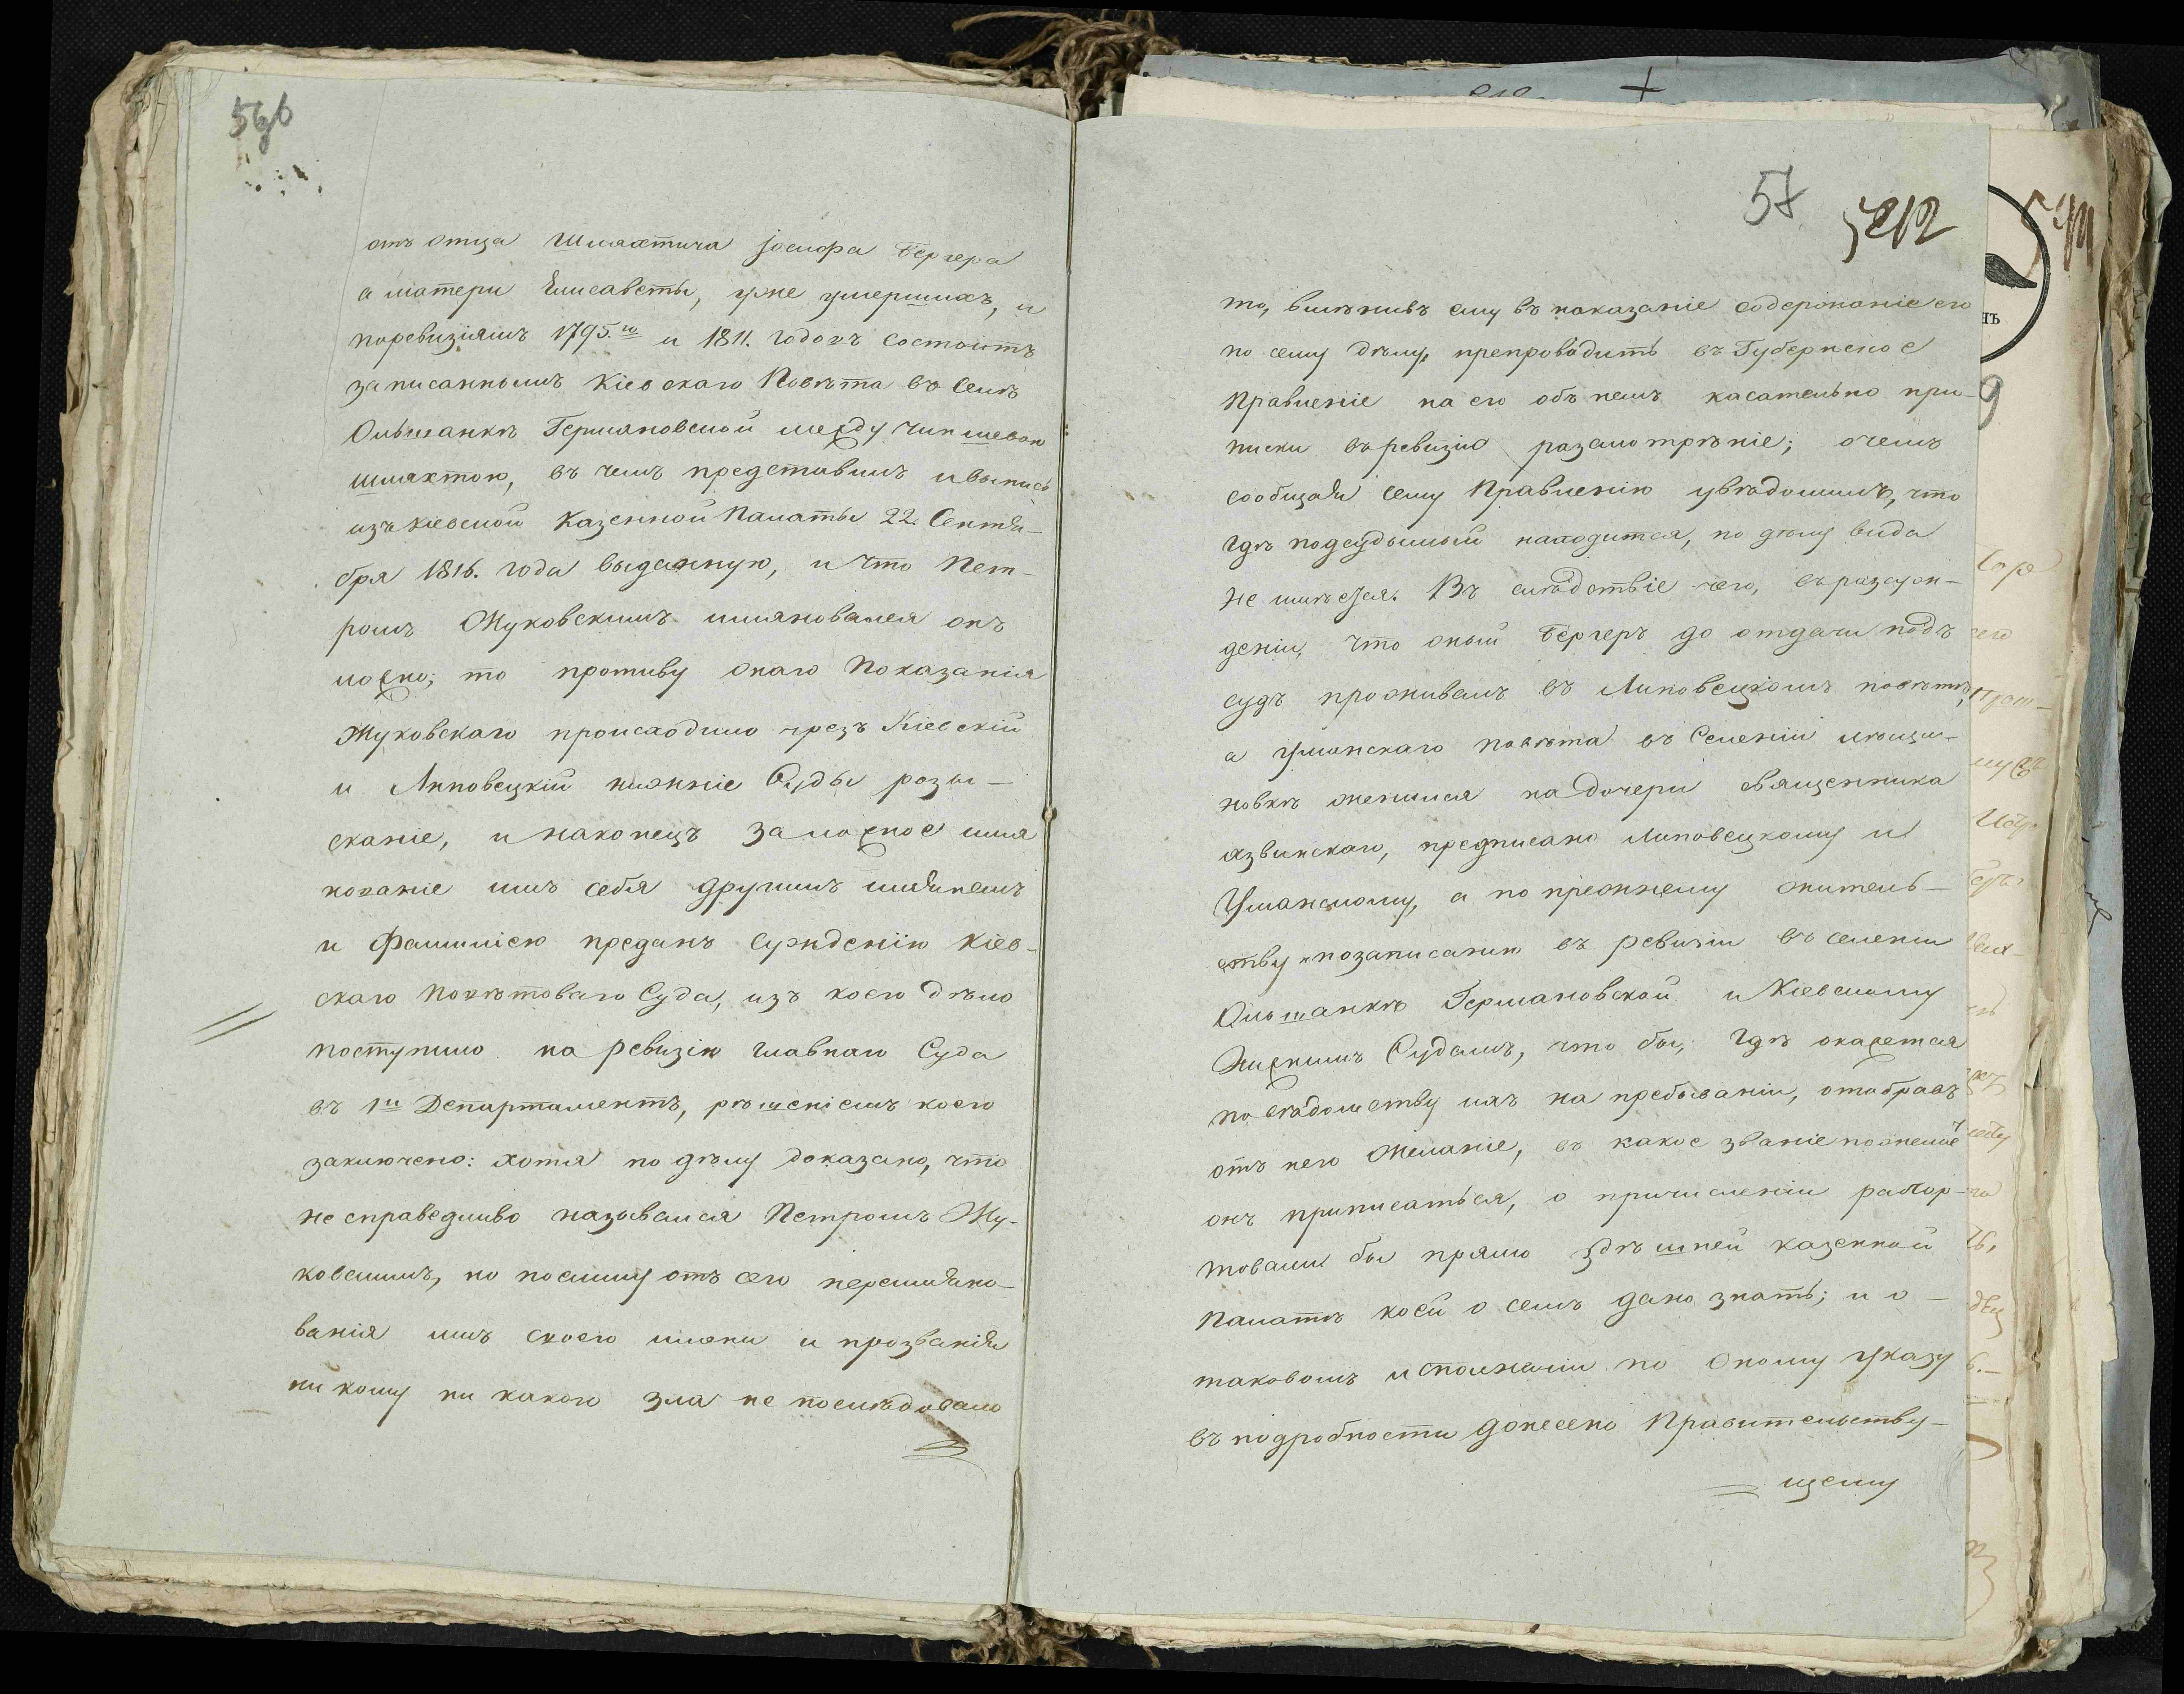 56об
отъ отца Шляхтича Іосифа Бергера
а матери Елисаветы, уже умершихъ, и
поревизіямъ 1795.го и 1811. годовъ состоитъ
записаннымъ Кіевскаго Повѣта въ Селѣ
Ольшанкѣ Германовской между чиншевою
шляхтою, въ чемъ представилъ и выпись
изъ кіевской Казенной Палаты 22. Сентя-
бря 1816. года выданную, и что Пет-
ромъ Жуковскимъ имяновался онъ
ложно; то противу онаго показанія
Жуковскаго происходило чрезъ Кіевскій
и Липовецкій нижніе Суды розы-
сканіе, и наконецъ за ложное имя
нованіе имъ себя другимъ имянемъ
и фамиліею преданъ сужденію Кіев-
скаго Повѣтоваго Суда, изъ коего дѣло
поступило на ревизію главнаго Суда
въ 1й Департаментъ, рѣшеніемъ коего
заключено: хотя по дѣлу доказано, что
не справедливо назывался Петромъ Жу-
ковскимъ, но поелику отъ сего переимяно-
ванія имъ своего имени и прозванія
ни кому ни какого зла не послѣдовало
57
то, вмѣнивъ ему въ наказаніе содержаніе его
по сему дѣлу, препроводить въ Губернское
Правленіе на его объ немъ касательно при-
писки въ ревизію разсмотрѣніе; о чемъ
сообщая сему Правленію увѣдомилъ, что
гдѣ подсудимый находится, по дѣлу вида
не имѣется. Въ слѣдствіе чего, въ разсуж-
деніи, что оный Бергеръ до отдачи подъ
судъ проживалъ въ Липовецкомъ повѣтѣ,
а Уманскаго повѣта въ Селеніи
новкѣ женился на дочери священника
Язвинскаго, предписано Липовецкому и
Уманскому, а по прежнему житель-
ству и по записанію въ ревизіи въ селеніи
Ольшанкѣ Германовской и Кіевскому
Нижнимъ Судамъ, что бы, гдѣ окажется
по вѣдомству ихъ на пребываніи, отобравъ
отъ него желаніе, въ какое званіе пожелаетъ
онъ приписаться, о причисленіи рапор-
товали бы прямо здѣшней казенной
Палатѣ коей о семъ дано знать; и о
таковомъ исполненіи по оному указу
въ подробности донесено Правительству-
ющему